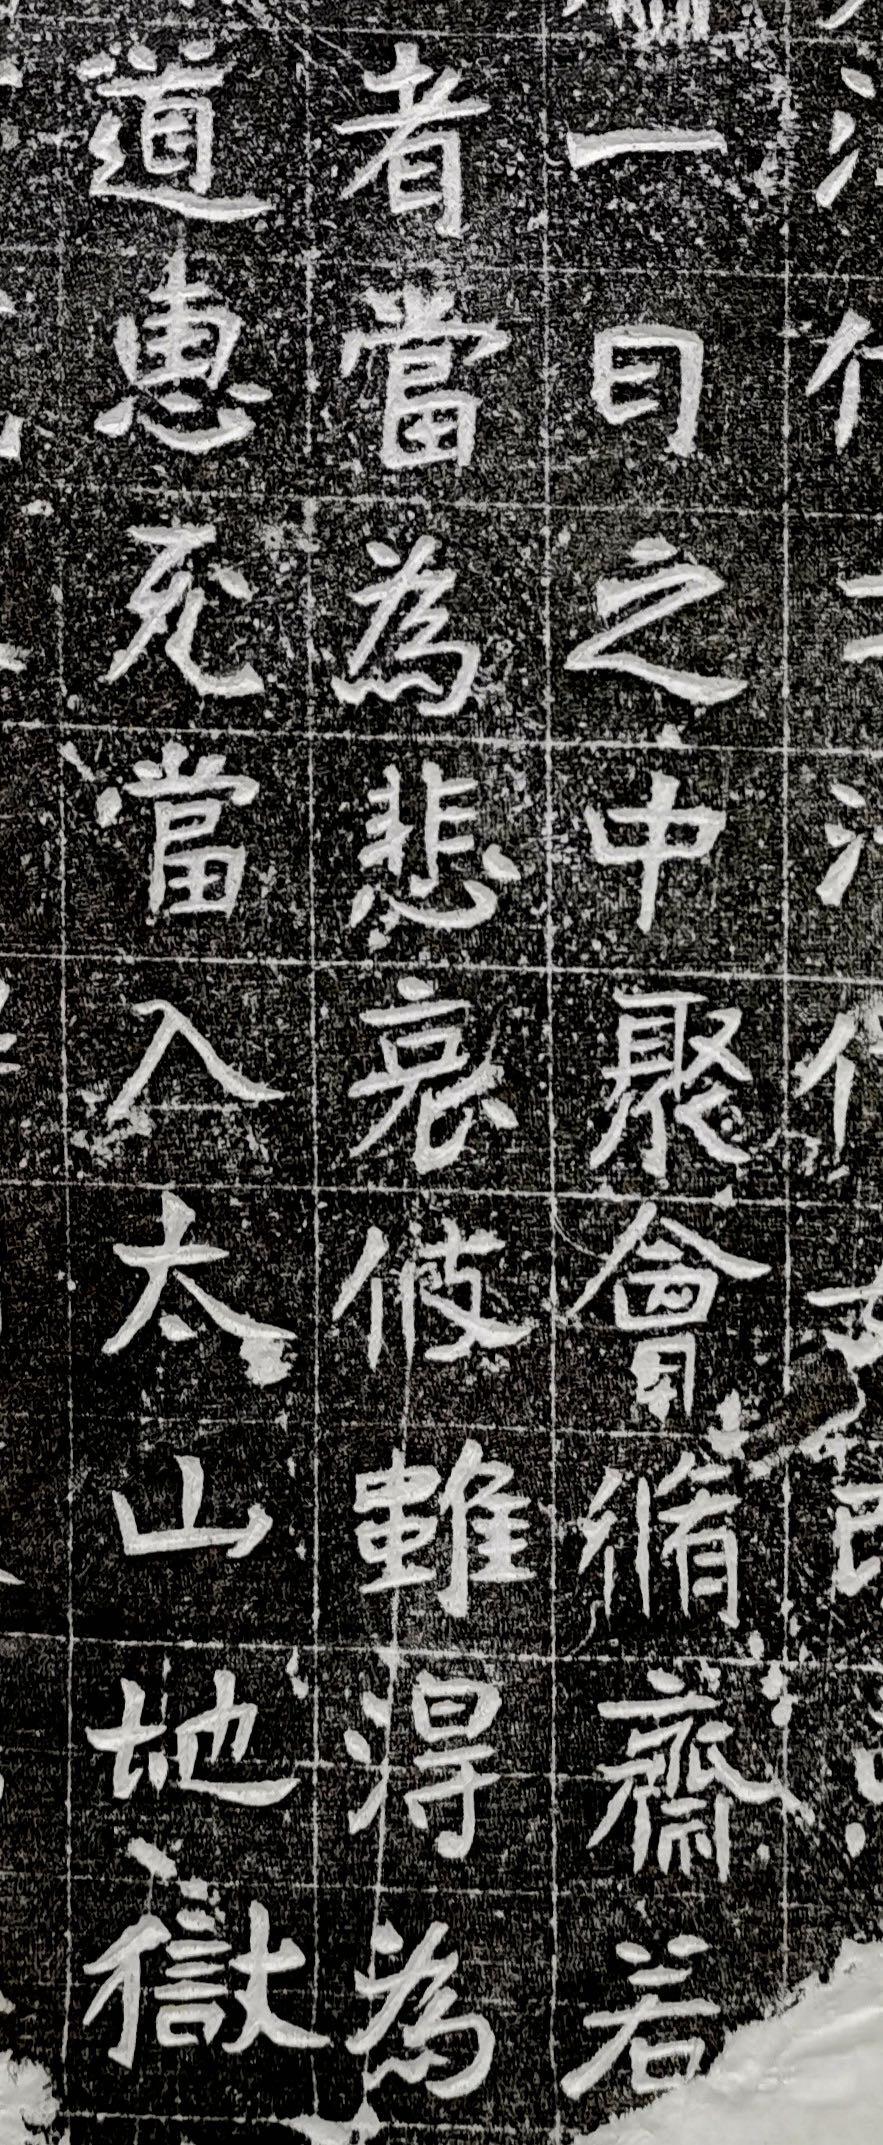 一日之中聚會脩齋若
者當為悲哀伎雖得為
道惠死當入太山地獄